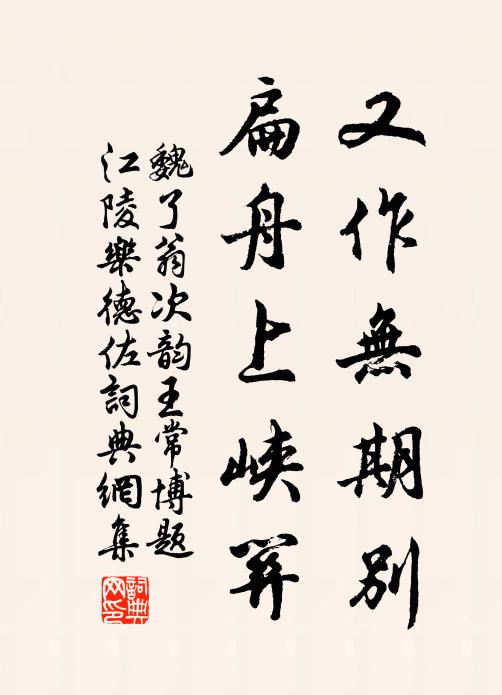 又作無期別
扁舟上峽關
魏了翁次韵王常博題
江陵樂德佐詞典網集
詞典
网印